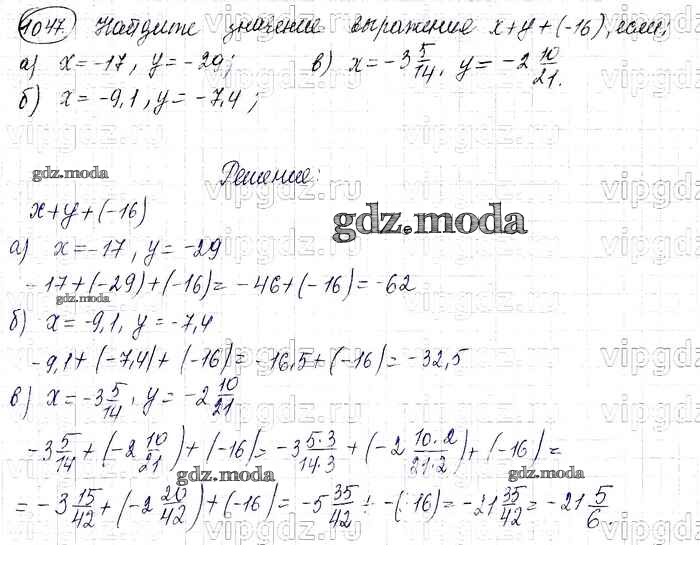 1047. Найдите значение выражения x+y+(-16), если;
а) x=-17, y=-29; в) x=-3 5/14, y=-2 10/21.
б) x=-9,1, y=-7,4;
gdz.moda
Решение:
x+y+(-16)
gdz.moda
а) x=-17, y=-29
-17+(-29)+(-16)=-46+(-16)=-62
gdz.moda
б) x=-9,1, y=-7,4
-9,1+(-7,4)+(-16)=-16,5+(-16)=-32,5
в) x=-3 5/14, y=-2 10/21
-3 5/14+(-2 10/21)+(-16)=-3 5·3/14·3+(-2 10·2/21·2)+(-16)=
gdz.moda gdz.moda
=-3 15/42+(-2 20/42)+(-16)=-5 35/42+-(16)=-21 35/42=-21 5/6.
vipgdz.ru vipgdz.ru vipgdz.ru